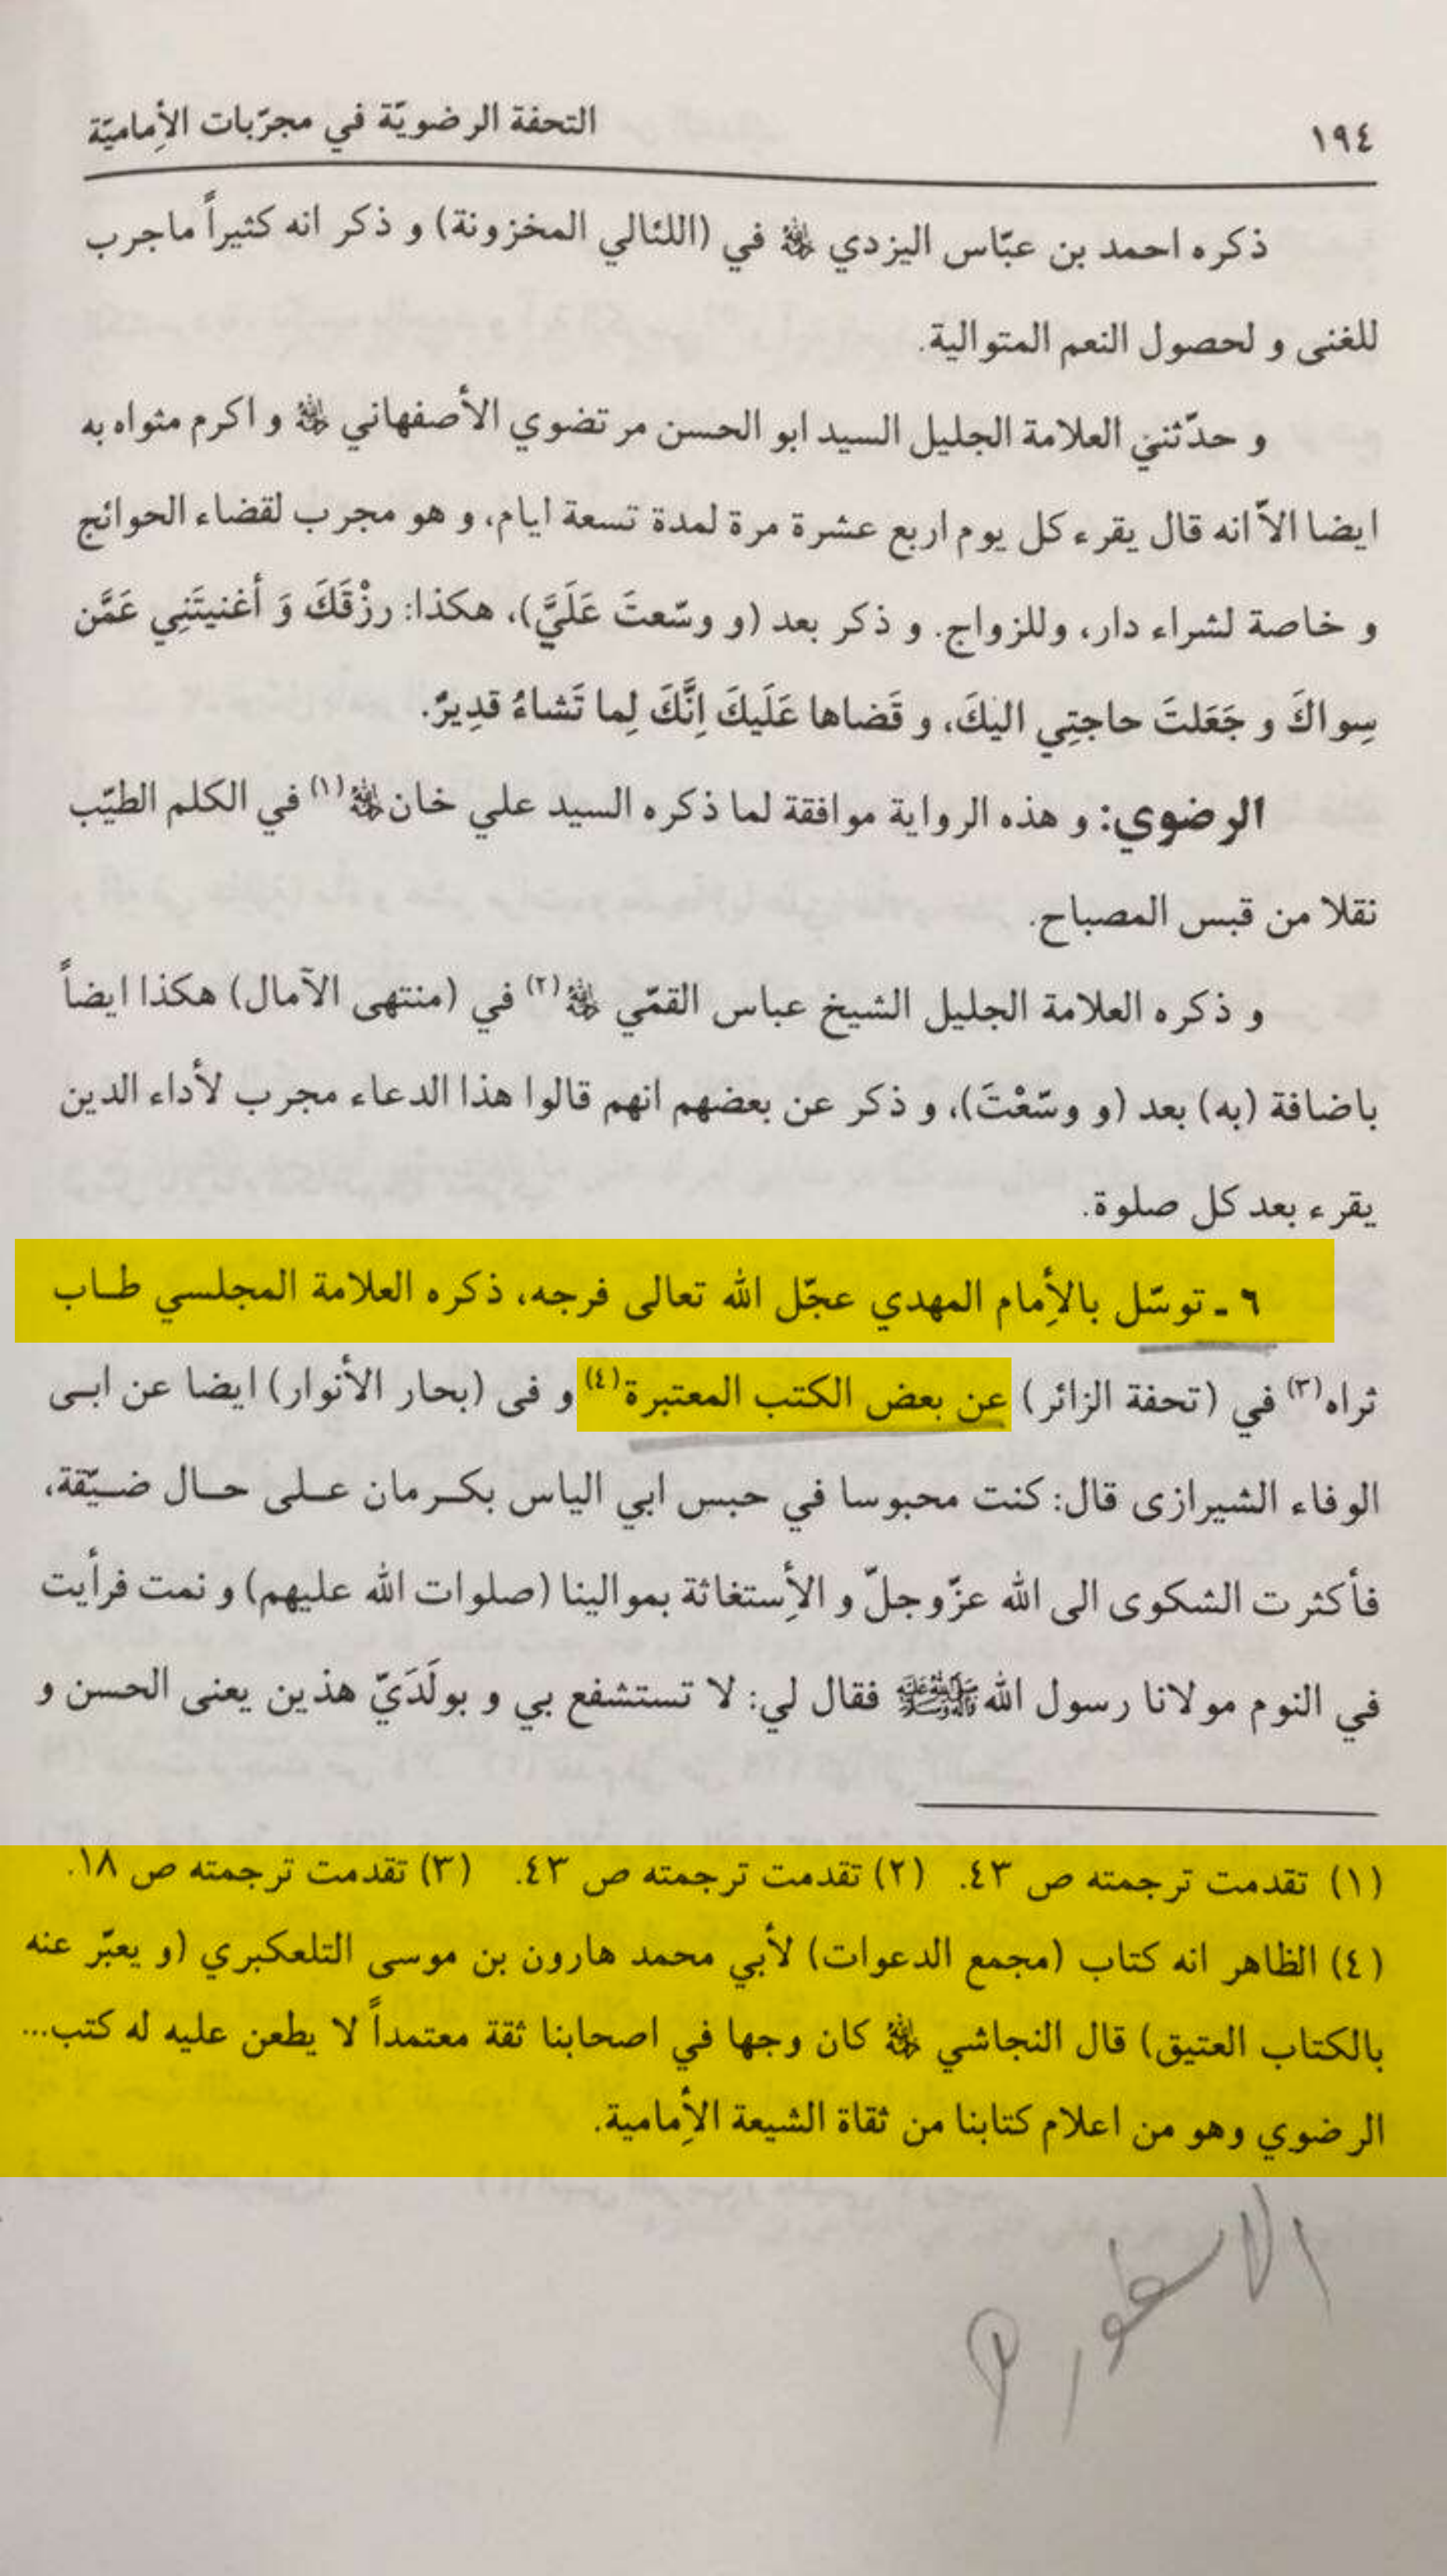 ١٩٤
التحفة الرضويّة في مجرّبات الأِماميّة
ذكره احمد بن عبّاس اليزدي ﷼ في (اللئالي المخزونة) و ذكر انه كثيراً ماجرب
للغنى و لحصول النعم المتوالية.
و حدّثني العلامة الجليل السيد ابو الحسن مرتضوي الأصفهاني و اكرم مثواه به
ايضا الاّ انه قال يقرء كل يوم اربع عشرة مرة لمدة تسعة ايام، و هو مجرب لقضاء الحوائج
و خاصة لشراء دار، وللزواج. و ذكر بعد (و وسّعتَ عَلَيَّ)، هكذا: رزْقَكَ وَ أغنيتَنِي عَمَّن
سِواكَ و جَعَلتَ حاجتِي اليكَ، و قَضاها عَلَيكَ اِنَّكَ لِما تَشاءُ قدِيرٌ.
الرضوي: و هذه الرواية موافقة لما ذكره السيد علي خان (١) في الكلم الطيّب
نقلا من قبس المصباح.
و ذكره العلامة الجليل الشيخ عباس القمّي (٢) في (منتهى الآمال) هكذا ايضاً
باضافة (به) بعد (و وسّعْتَ)، و ذكر عن بعضهم انهم قالوا هذا الدعاء مجرب لأداء الدين
يقرء بعد كل صلوة.
٦ ـ توسّل بالأِمام المهدي عجّل الله تعالى فرجه، ذكره العلامة المجلسي طـاب
ثراه(٣) في (تحفة الزائر) عن بعض الكتب المعتبرة(٤) و فى (بحار الأنوار) ايضا عن ابـى
الوفاء الشيرازى قال: كنت محبوسا في حبس ابي الياس بكـرمان عـلى حـال ضـيّقة،
فأكثرت الشكوى الى الله عزّوجلّ و الأِستغاثة بموالينا (صلوات الله عليهم) و نمت فرأيت
في النوم مولانا رسول الله ﷺ فقال لي: لا تستشفع بي و بولَدَيّ هذين يعنى الحسن و
(١) تقدمت ترجمته ص ٤٣. (٢) تقدمت ترجمته ص ٤٣. (٣) تقدمت ترجمته ص ١٨.
(٤) الظاهر انه كتاب (مجمع الدعوات) لأبي محمد هارون بن موسى التلعكبري (و يعبّر عنه
بالكتاب العتيق) قال النجاشي كان وجها في اصحابنا ثقة معتمداً لا يطعن عليه له كتب...
الرضوي وهو من اعلام كتابنا من ثقاة الشيعة الأِمامية.